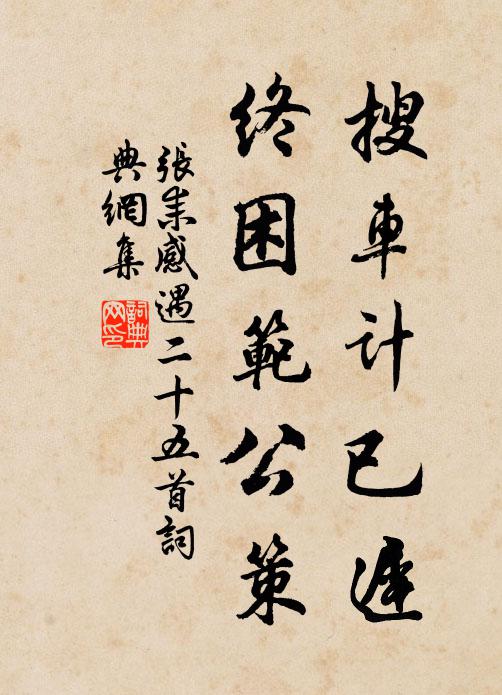 搜車計已遲
終困範公策
張耒感遇二十五首詞
典網集
詞典
网印